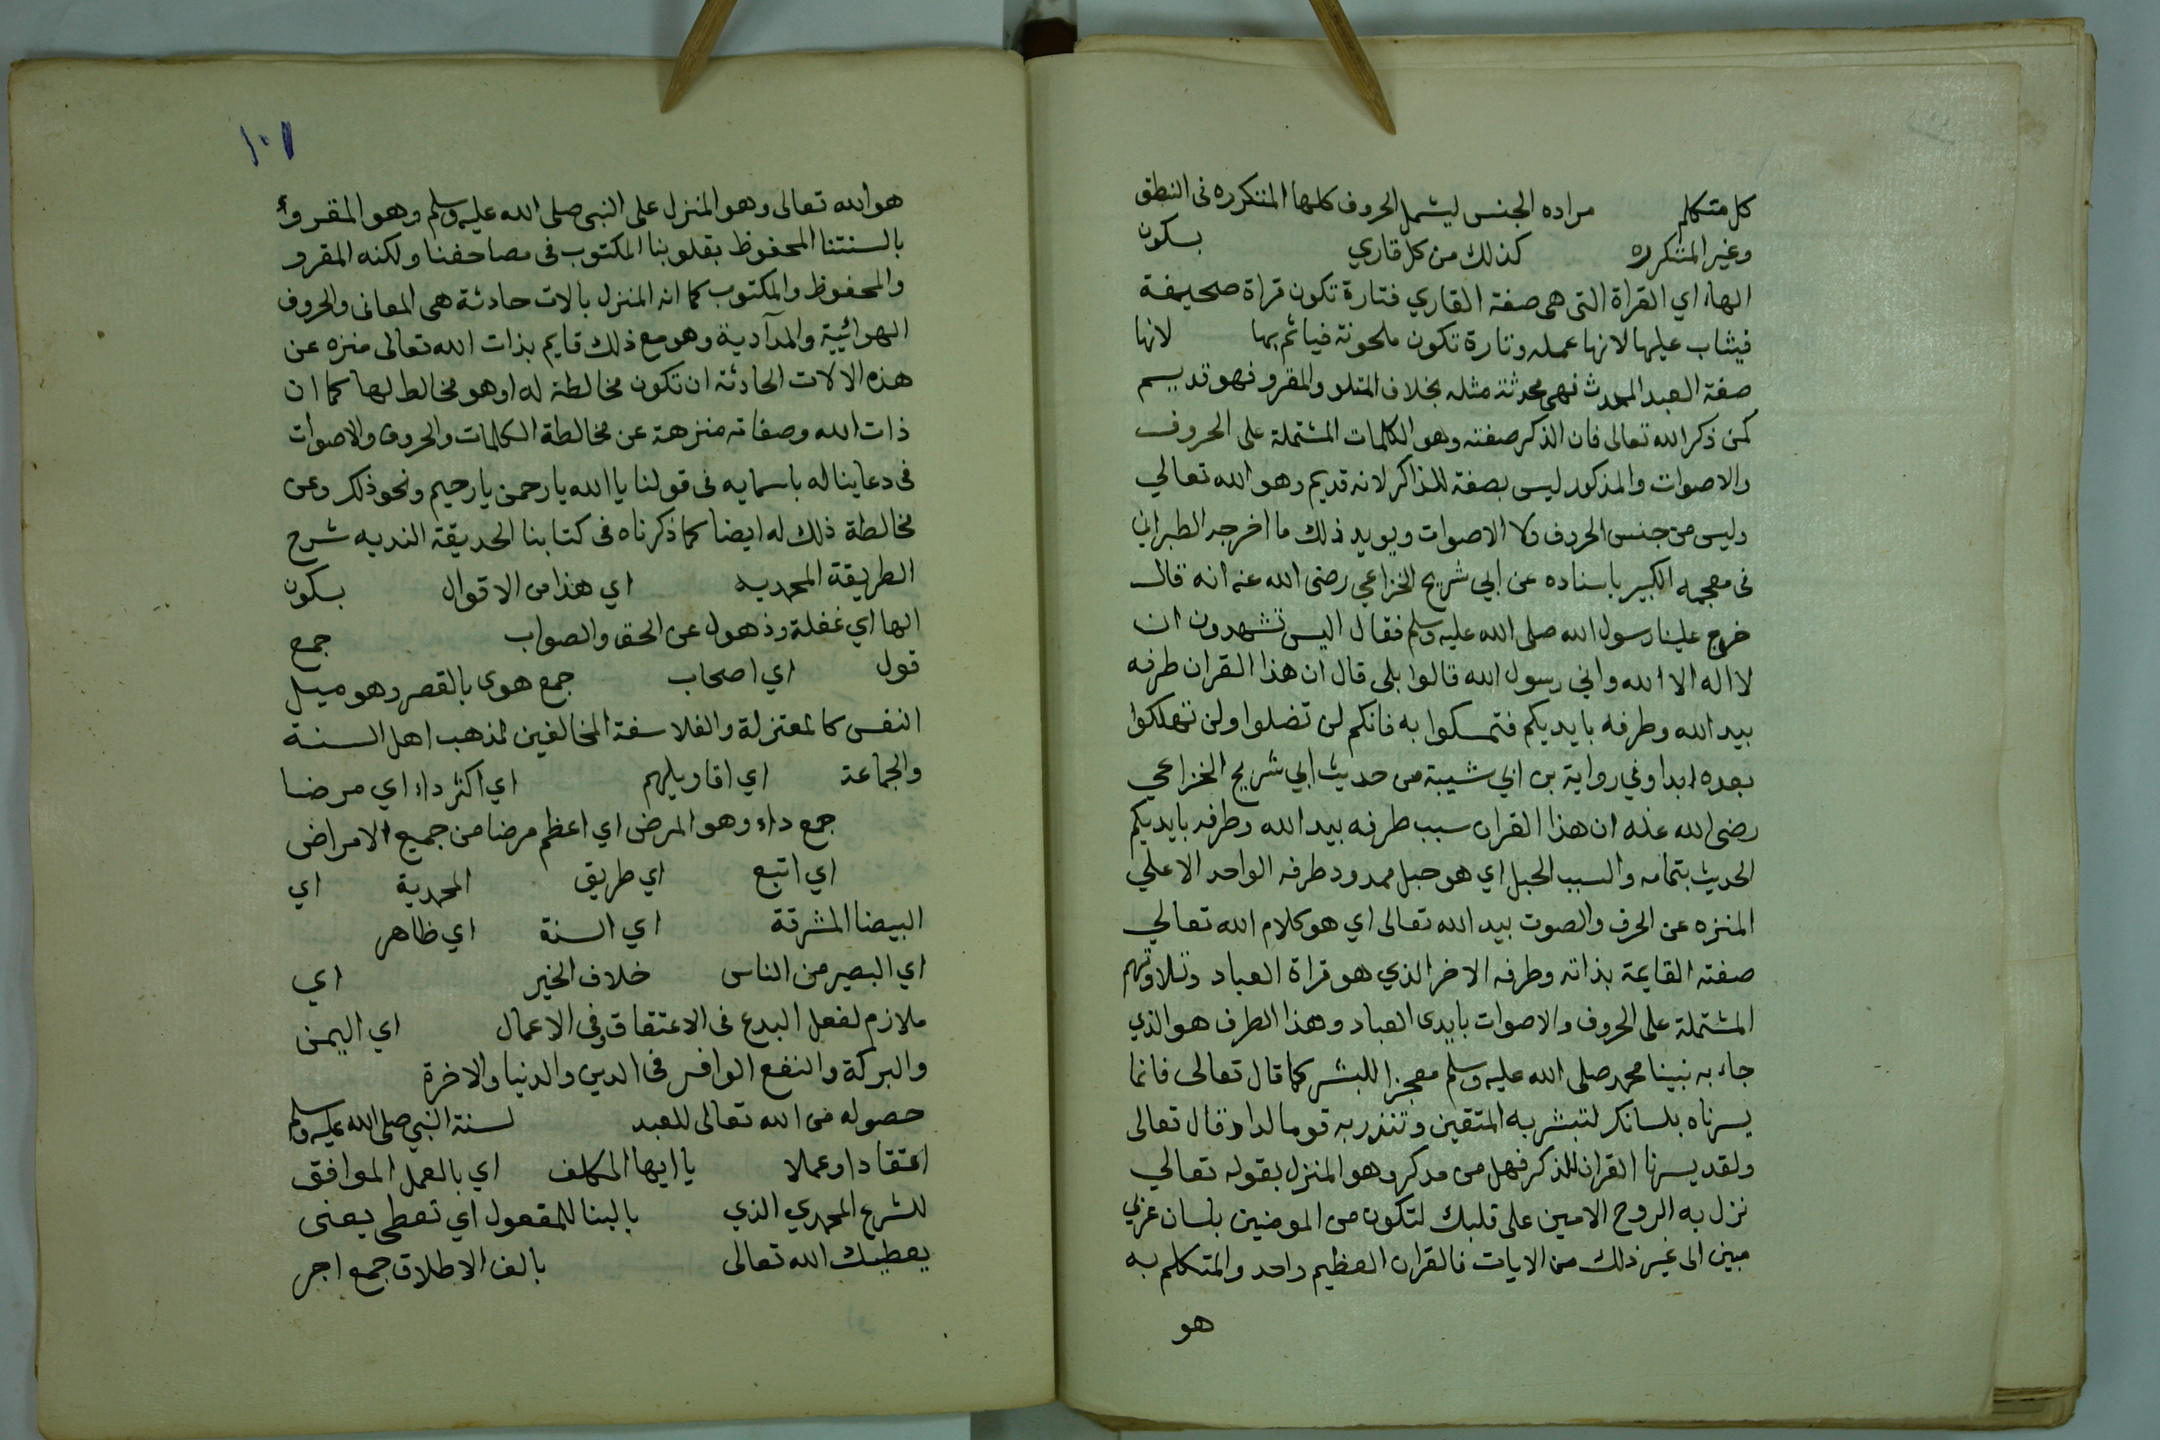 كل متكلم مراده الجنس ليشمل الحروف كلها المتكرره فى النطق
وغير المتكرره كذلك من كل قاري بسكون
الهاء اي القراة التى هى صفة القاري فتارة تكون قراة صحيحة
فيثاب عليها لانها عمله وتارة تكون ملحونة فياثم بها لانها
صفة العبد المحدث فهى محدثة مثله بخلاف المتلو والمقرو فهو قديم
كمن ذكر الله تعالى فان الذكر صفته وهو الكلمات المشتملة على الحروف
والاصوات والمذكور ليس بصفة للذاكر لانه قديم وهو الله تعالي
وليس من جنس الحروف ولا الاصوات ويويد ذلك ما اخرجه الطبراني
فى معجمه الكبير باسناده عن ابي شريح الخزاعي رضى الله عنه انه قال
خرج علينا رسول الله صلى الله عليه وسلم فقال اليس تشهدون ان
لا اله الا الله واني رسول الله قالوا بلى قال ان هذا القران طرفه
بيد الله وطرفه بايديكم فتمسكوا به فانكم لن تضلوا ولن تهلكوا
بعده ابدا وفي رواية بن ابي شيبة من حديث ابي شريح الخزاعي
رضى الله عنه ان هذا القران سبب طرفه بيد الله وطرفه بايديكم
الحديث بتمامه والسبب الحبل اي هو حبل ممدود طرفه الواحد الاعلي
المنزه عن الحرف والصوت بيد الله تعالى اي هو كلام الله تعالي
صفته القايمة بذاته وطرفه الاخر الذي هو قراة العباد وتلاوتهم
المشتملة على الحروف والاصوات بايدى العباد وهذا الطرف هو الذي
جاء به نبينا محمد صلى الله عليه وسلم معجزا للبشر كما قال تعالى فانما
يسرناه بلسانك لتبشر به المتقين وتنذر به قوما لدا وقال تعالى
ولقد يسرنا القران للذكر فهل من مدكر وهو المنزل بقوله تعالي
نزل به الروح الامين على قلبك لتكون من المومنين بلسان عربي
مبين الى غير ذلك من الايات فالقران العظيم واحد والمتكلم به
هو
١٠١
هو الله تعالى وهو المنزل على النبى صلى الله عليه وسلم وهو المقروأ
بالسنتنا المحفوظ بقلوبنا المكتوب فى مصاحفنا ولكنه المقرو
والمحفوظ والمكتوب كما انه المنزل بالات حادثة هى المعانى والحروف
الهوائيية والمدآدية وهو مع ذلك قايم بذات الله تعالى منزه عن
هذه الالات الحادثة ان تكون مخالطة له او هو مخالط لها كما ان
ذات الله وصفاته منزهة عن مخالطة الكلمات والحروف والاصوات
فى دعاينا له باسمايه فى قولنا يا الله يا رحمن يا رحيم ونحو ذلك وعن
مخالطة ذلك له ايضا كما ذكرناه فى كتابنا الحديقة النديه شرح
الطريقة المحمديه اي هذا من الاقوال بسكون
الها اي غفلة وذهول عن الحق والصواب جمع
قول اي اصحاب جمع هوى بالقصر وهو ميل
النفس كالمعتزلة والفلاسفة المخالفين لمذهب اهل السنة
والجماعة اي اقاويلهم اي اكثر داء اي مرضا
جمع داء وهو المرض اي اعظم مرضا من جميع الامراض
اي اتبع اي طريق المحمدية اي
البيضا المشرقة اي السنة اي ظاهر
اي البصير من الناس خلاف الخير اي
ملازم لفعل البدع فى الاعتقاق وفى الاعمال اي اليمن
والبركة والنفع الوافر فى الدين والدنيا والاخرة
حصوله من الله تعالى للعبد لسنة النبي صلى الله عليه وسلم
اعتقادا وعملا يا ايها المكلف اي بالعمل الموافق
للشرع المحمدي الذي بالبنا للمفعول اي تعطى يعنى
يعطيك الله تعالى بالف الاطلاق جمع اجر